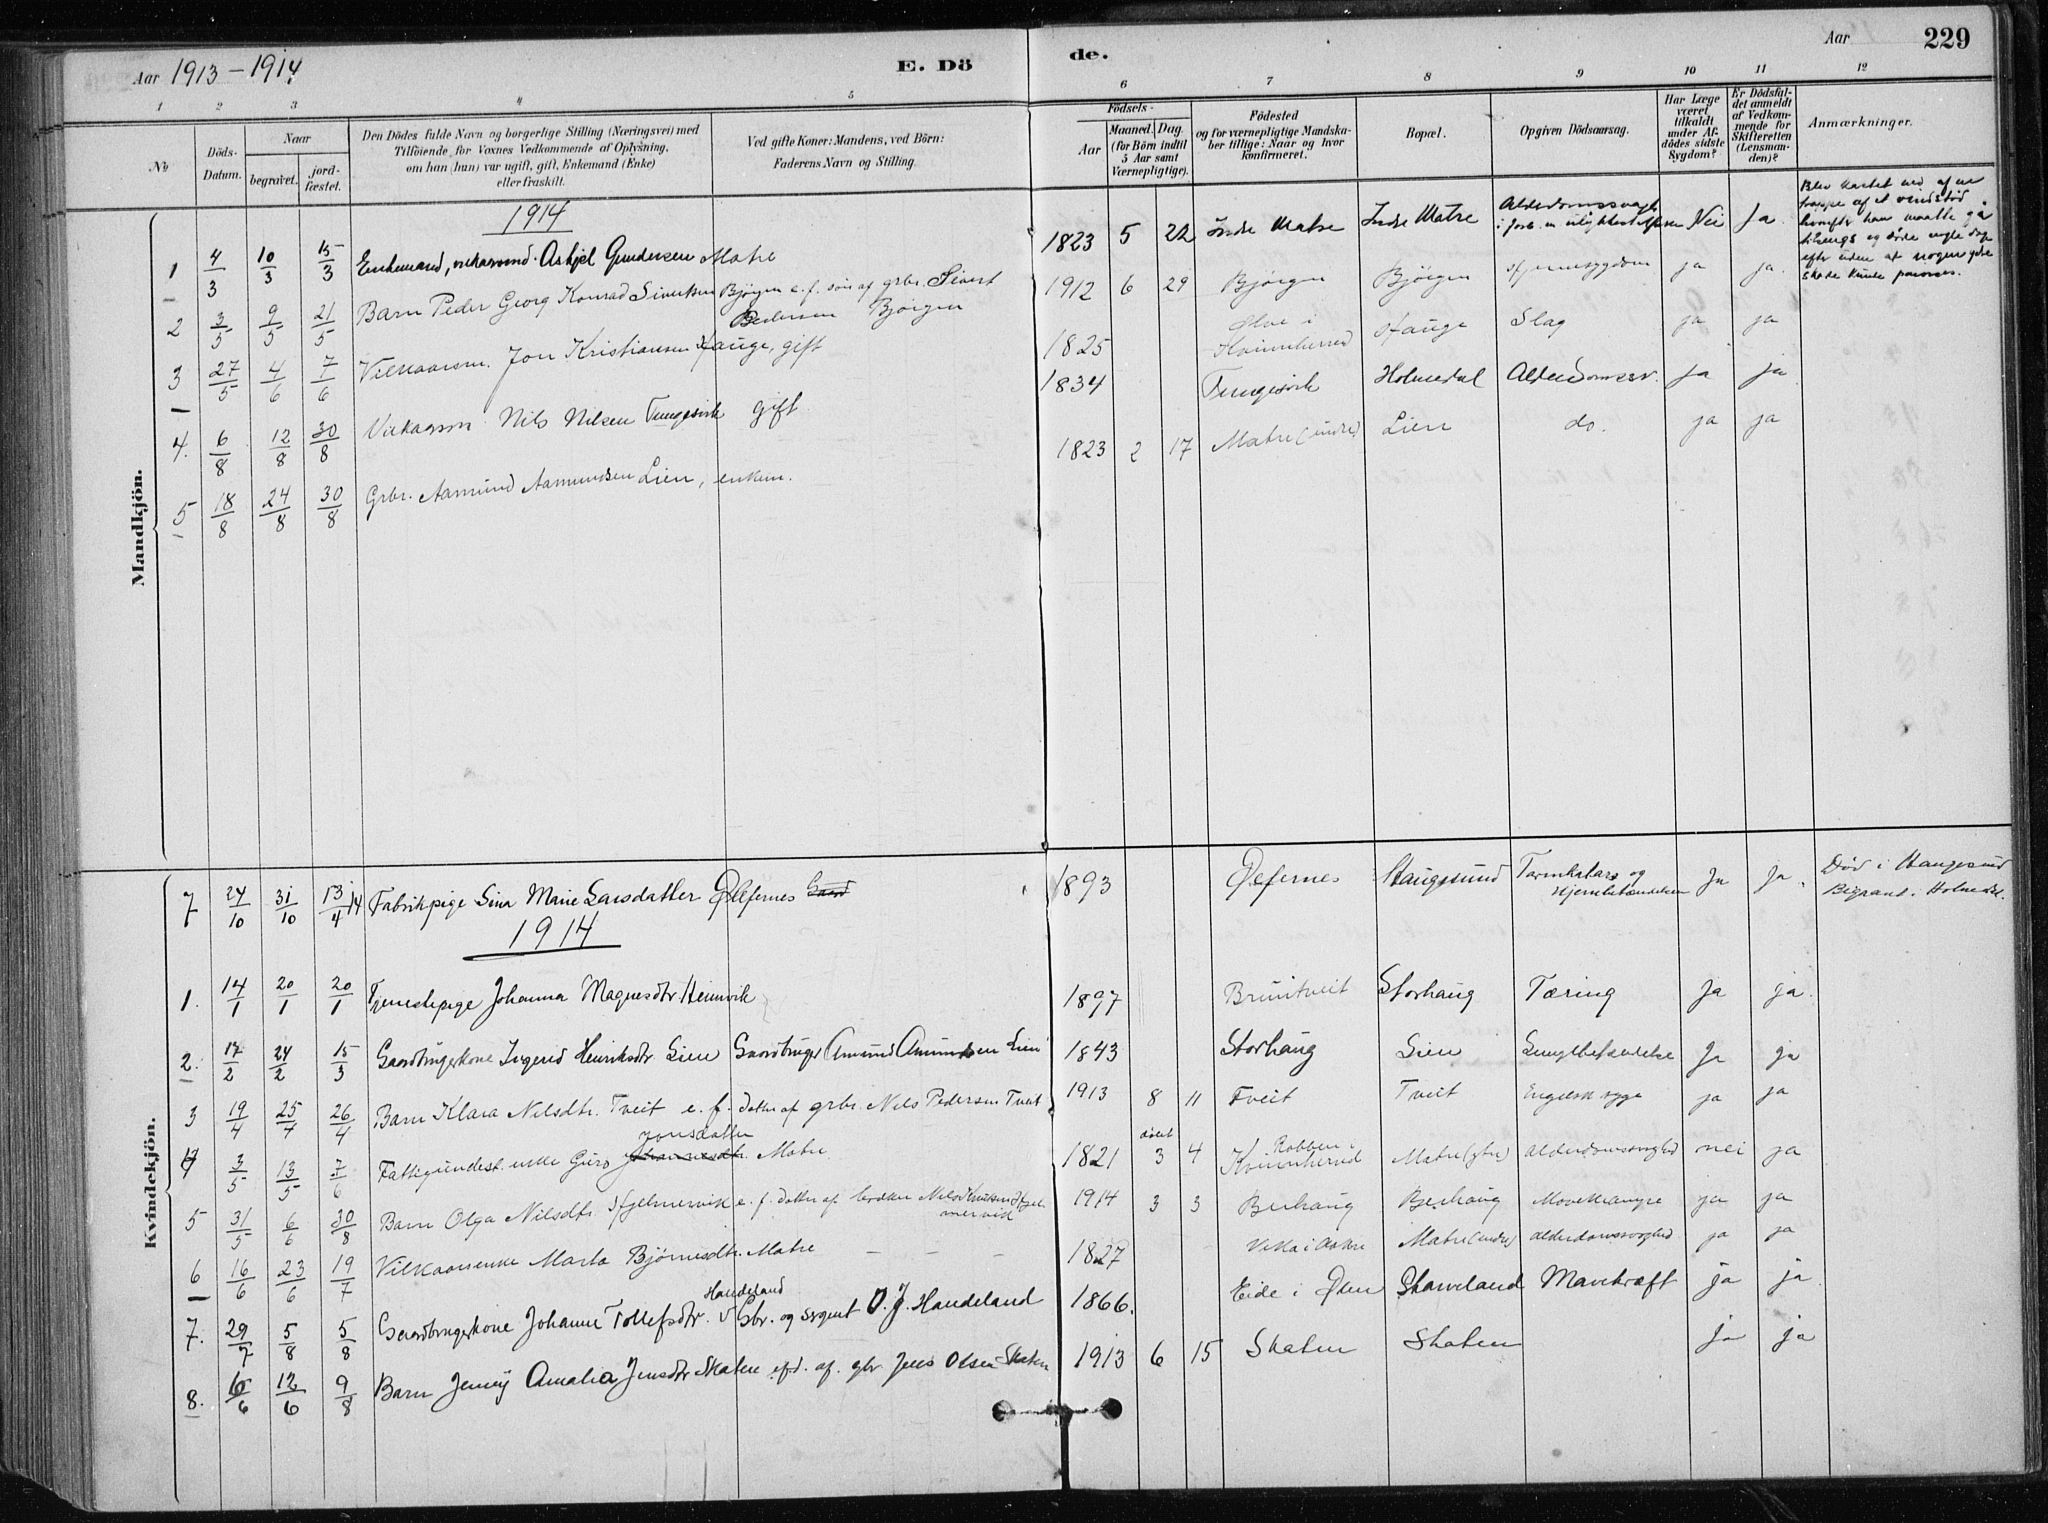 Aar 1913-1914
E. Dö
de.
Aar
229
1 2 3 4 5 6 7 8 9 10 11 12
No
Döds-Datum.
Naar
begravet.
jord-fæstet.
Den Dödes fulde Navn og borgerlige Stilling (Næringsvei) med
Tilföiende for Voxnes Vedkommende af Oplysning,
om han (hun) var ugift, gift, Enkemand (Enke)
eller fraskilt.
Ved gifte Koner: Mandens, ved Börn:
Faderens Navn og Stilling.
Födsels-
Aar
Maaned. Dag.
(for Börn indtil
5 Aar samt
Værnepligtige).
Födested
og for værnepligtige Mandska-
ber tillige: Naar og hvor
konfirmeret.
Bopæl.
Opgiven Dödsaarsag.
Har Læge
været
tilkaldt
under Af-
dödes sidste
Sygdom?
Er Dödsfal-
det anmeldt
af Vedkom-
mende for
Skifteretten
(Lensman-
den)?
Anmærkninger.
Mandkjön.
1914
1 4/3 10/3 15/3 Enkemand, Askjel Gundersen Matre 1823 5 22 Indre Matre Indre Matre Alderdomssvagh. Nei Ja
2 3/5 9/5 21/5 Barn Peder Georg Konrad Sivertsen Bjørgen e. f. søn af grbr. Sivert
Pedersen Bjørgen 1912 6 29 Bjørgen Bjørgen Hjernesygdom ja ja
3 27/5 4/6 7/6 Vilkaarsm. Jon Kristiansen Hauge, gift 1825 Ølve i
Kvinnherred Hauge Slag ja ja
4. 6/8 12/8 30/8 Nils Nilsen Tungesvik gift 1834 Tungesvik Holmedal Alderdomssv. ja ja
5 18/8 24/8 30/8 Grbr. Aamund Aamundsen Lien, enkem. 1823 2 17 Matre (indre) Lien do. ja ja
Kvindekjön.
7 24/10 31/10 13/4 14 Fabrikpige Lina Marie Larsdatter Ølfernes 1893 Ølfernes Haugesund Tarmkatar og
Hjernebetændelse Ja Ja. Død i Haugesund
Begravt i Holmedal.
1914
1. 14/1 20/1 20/1 Tjenestepige Johanna Magnesdtr Heimvik 1897 Bruntveit Storhaug Tæring Ja ja.
2. 17/2 24/2 15/3 Gaardbrugerkone Ingerid Henriksdtr Lien Gaardbruger Amund Amundsen Lien 1843 Storhaug Lien Lungebetændelse Ja ja
3 19/4 25/4 26/4 Barn Klara Nilsdtr. Tveit e. f. datter af grbr. Nils Pedersen Tveit 1913 8 11 Tveit Tveit Engelsk syge ja ja
4 3/5 13/5 7/6 Fattigunderst. enke Guro Jonsdatter Matre 1821 3 4 Kvinnherred Matre (ytre) alderdomssvaghed nei ja
5 31/5 6/6 30/8 Barn Olga Nilsdtr Hjelmervik e. f. datter af Nils Knutsen Hjel-
mervik 1914 3 3 Berhaug Berhaug Mavekrampe ja ja
6 16/6 23/6 19/7 Vilkaarsenke Marta Bjørnesdtr. Matre - - - 1827 Vika i Matre (indre) alderdomssvaghed ja ja
7. 29/7 5/8 5/8 Gaardbrugerkone Johanne Tollefsdtr. Handeland Gbr. og sergent O. J. Handeland 1866. Eide i Ølen Skarveland Mavekræft ja ja
8. 6/6 12/6 9/8 Barn Jenny Amalia Jensdtr Skaten efd. af. gbr Jens Olsen Skaten 1913 6 15 Skaten Skaten ja ja